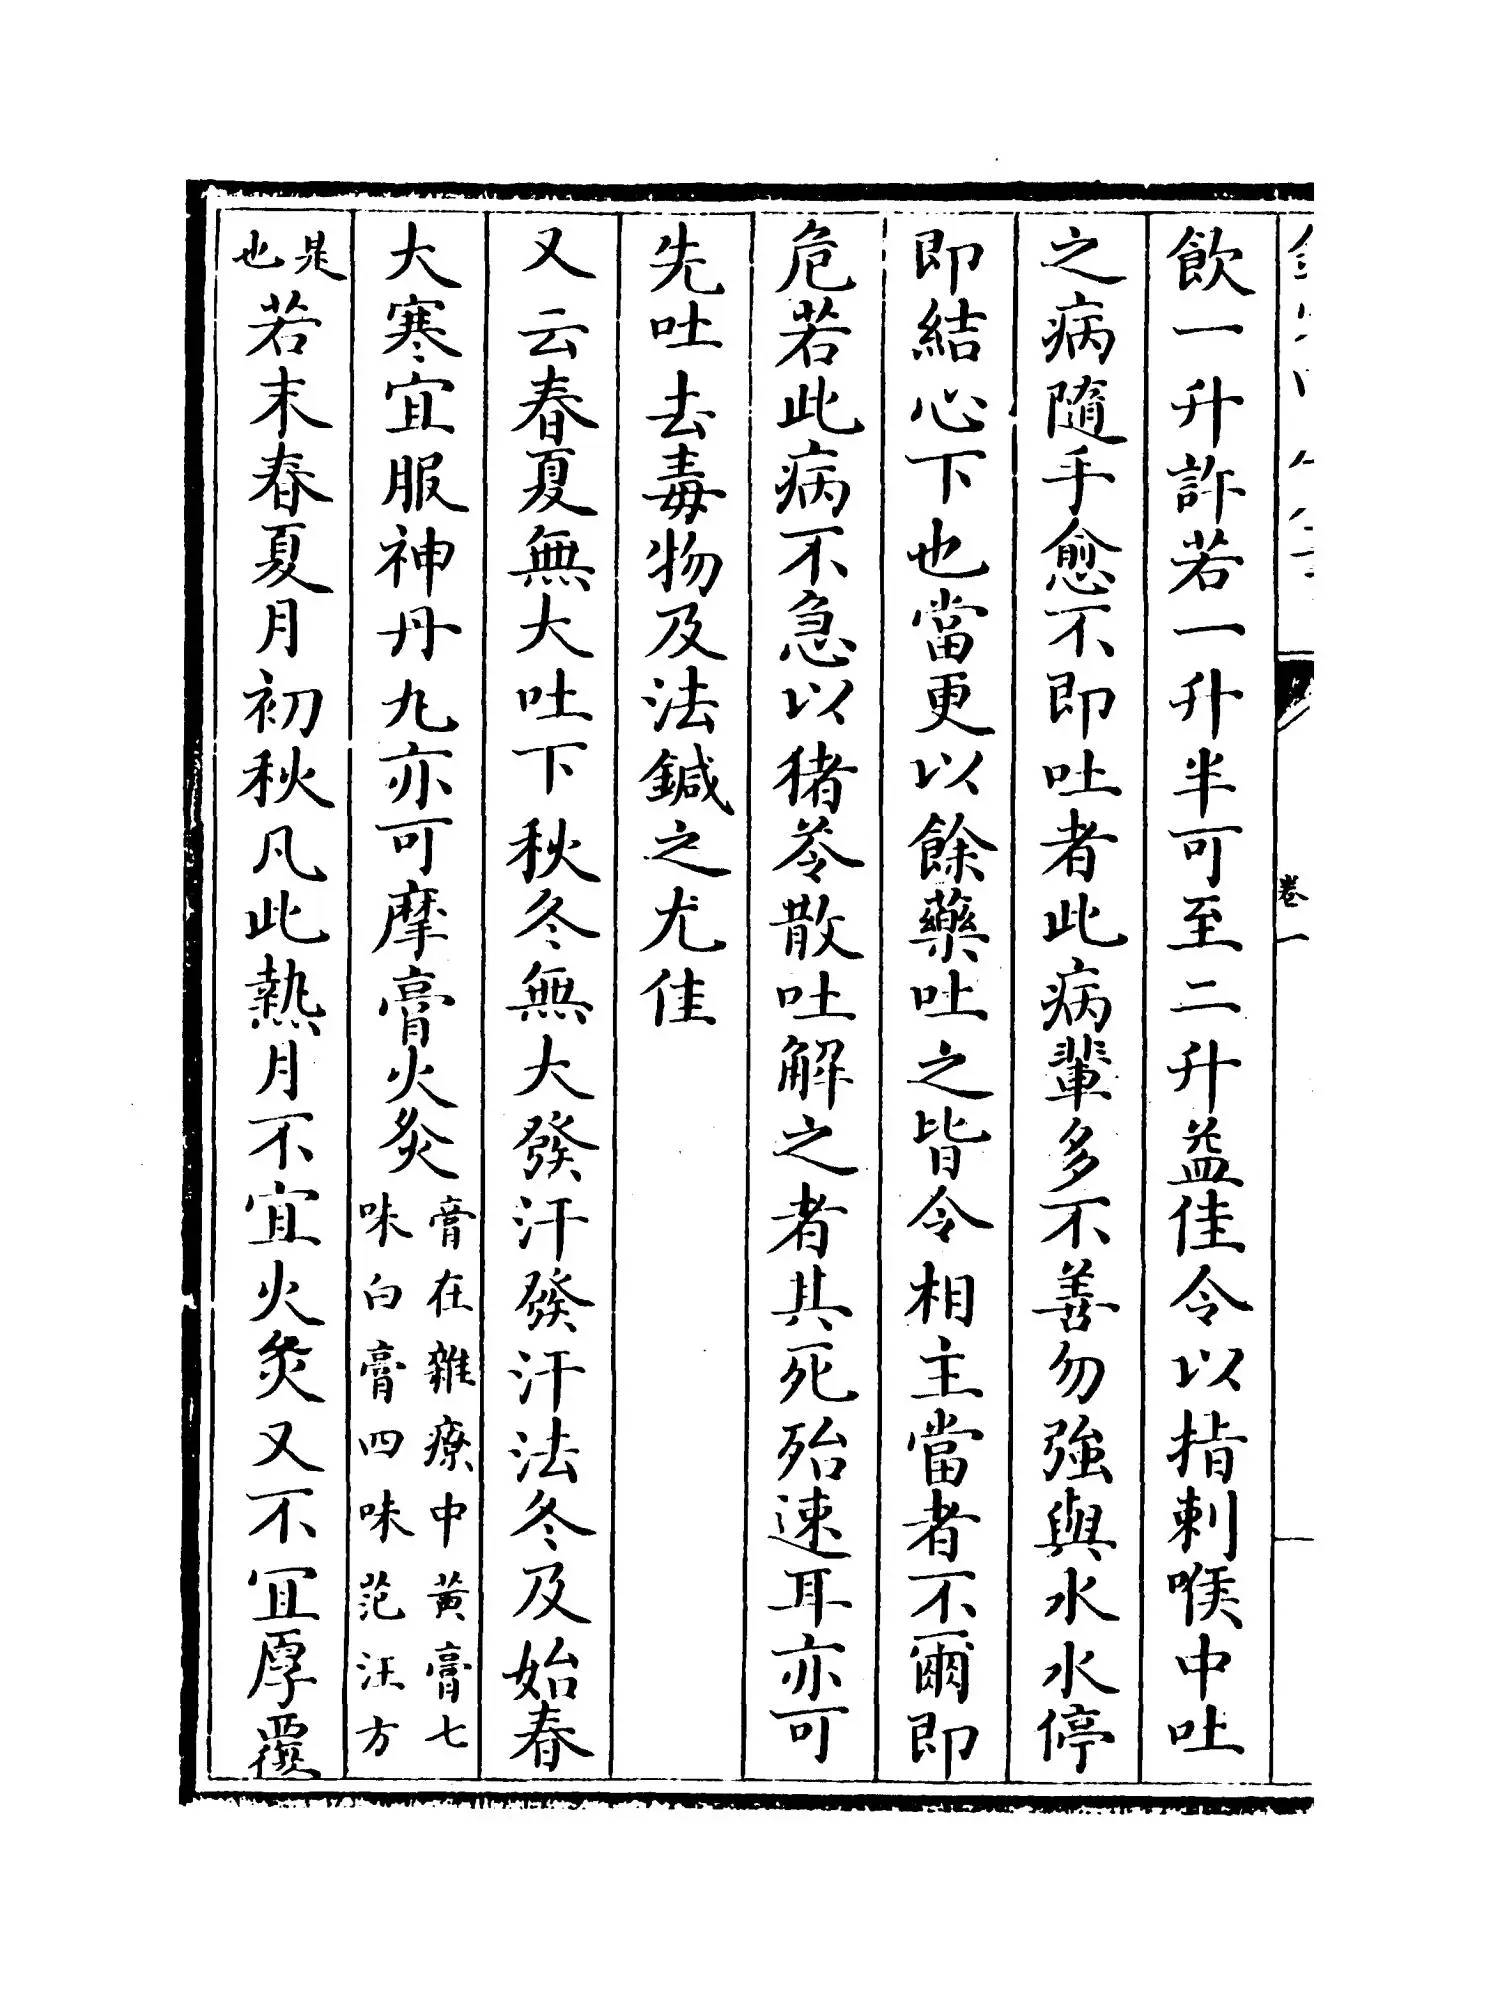 飲一升許若一升半可至二升益佳令以指刺喉中吐
之病隨手愈不即吐者此病輩多不善勿強與水水停
即結心下也當更以餘藥吐之皆令相主當者不爾即
危若此病不急以猪苓散吐解之者其死殆速耳亦可
先吐去毒物及法鍼之尤佳
又云春夏無大吐下秋冬無大發汗發汗法冬及始春
大寒宜服神丹丸亦可摩膏火灸膏在雜療中黄膏七味白膏四味范汪方
是也若末春夏月初秋凡此熱月不宜火灸又不宜厚覆
卷一